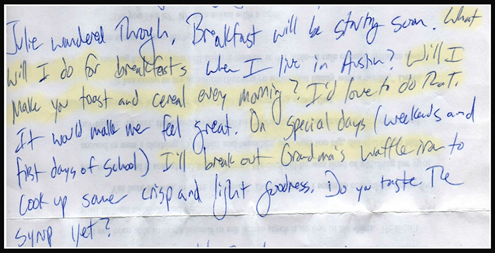 Julie wandered through. Breakfast will be starting soon. What
will I do for breakfasts when I live in Austin? Will I
make you toast and cereal every morning? I'd love to do that.
It would make me feel great. On special days (weekends and
first days of school) I'll break out Grandma's waffle iron to
cook up some crisp and light goodness. Do you taste the
syrup yet?